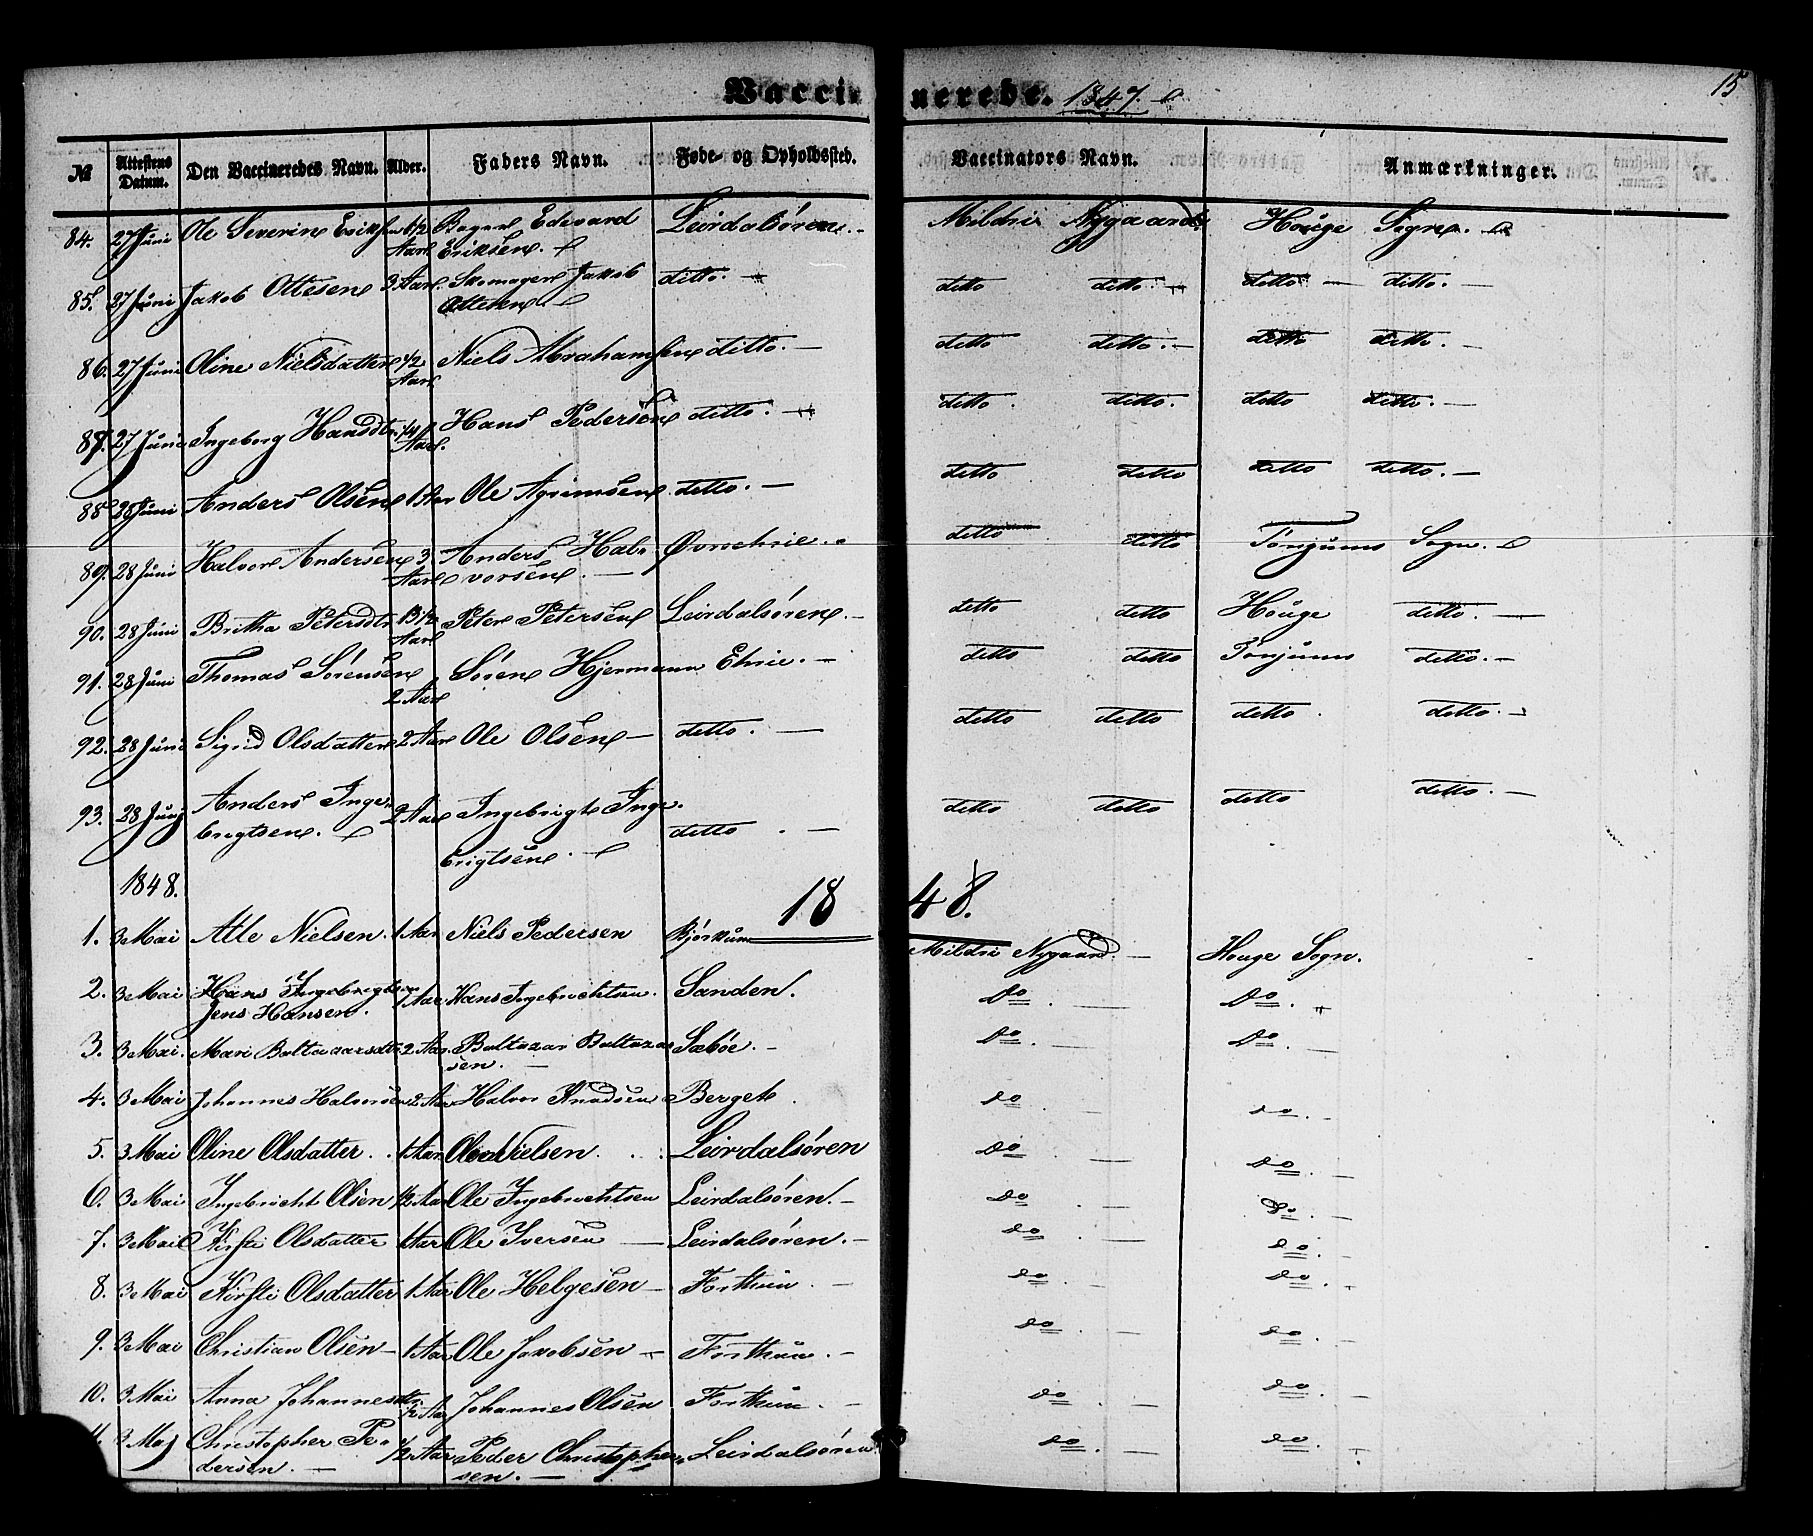 Vaccinerede. 1847.
15
№ Attestens Datum. Den Vaccineredes Navn. Alder. Faders Navn. Føde- og Opholdssted. Vaccinators Navn. Anmærkninger.
84. 27 Juni Ole Severin Eriksen 1/2 Aar Bager Edevard Eriksen. Leirdalsøren. Mildri Nygaard Houge Sogn.
85. 27 Juni Jakob Ottesen 3 Aar Skomager Jakob Ottesen. ditto. ditto ditto. ditto ditto.
86. 27 Juni Oline Nielsdatter 1/2 Aar Niels Abrahamsen ditto. ditto ditto. ditto ditto.
87. 27 Juni Ingeborg Hansdtr. 1/4 Aar. Hans Pedersen ditto. ditto. ditto. ditto ditto.
88 28 Juni Anders Olsen 1 Aar Ole Agrimsen ditto. ditto ditto ditto ditto.
89. 28 Juni Halvor Andersen 3 Aar Anders Halvorsen. ditto ditto Tonjums Sogn.
90. 28 Juni Britha Petersdtr. Aar Peter Petersen Leirdalsøren. ditto ditto Houge ditto.
91. 28 Juni Thomas Sørensen 2 Aar Søren Hjermann Ehrie. ditto ditto Tonjums ditto.
92. 28 Juni Sigrid Olsdatter 2 Aar Ole Olsen ditto. ditto ditto ditto. ditto.
93. 28 Junj Anders Ingebrigtsen. 2 Aar Ingebrigt Ingebrigtsen. ditto. ditto ditto ditto ditto.
1848. 1848.
1. 3 Mai Atle Nielsen. 1 Aar Niels Pedersen Bjørkum Mildri Nygaard. Houge Sogn.
2. 3 Mai Hans Ingebrigtsen
Jens Hansen. 1 Aar Hans Ingebrichtsen. Sanden. Do. Do.
3. 3 Mai. Mari Baltazarsdtr 2 Aar. Baltazar Baltazarsen. Sæbøe. Do. Do.
4. 3 Mai Johannes Halvorsen 2 Aar Halvor Knudsen Berget. do. do.
5. 3 Mai Oline Olsdatter. 1 Aar Ole Nielsen. Leirdalsøren do. do.
6. 3 Mai Ingebricht Olsen 1/2 Aar Ole Ingebrichtsen Leirdalsøren. do. do.
7. 3 Mai Kirsti Olsdatter 1 Aar Ole Iversen Leirdalsøren. do. do.
8. 3 Mai Kirsti Olsdatter 1 Aar Ole Helgesen Forthun. do. do.
9. 3 Mai Christian Olsen 1 Aar Ole Jakobsen Forthun. do. do.
10. 3 Mai Anna Johannesdtr. 1/2 Aar Johannes Olsen Forthun. do. do.
3 Maj Christopher Pedersen. 1/2 Aar Peder Christophersen. Leirdalsøren do. do.